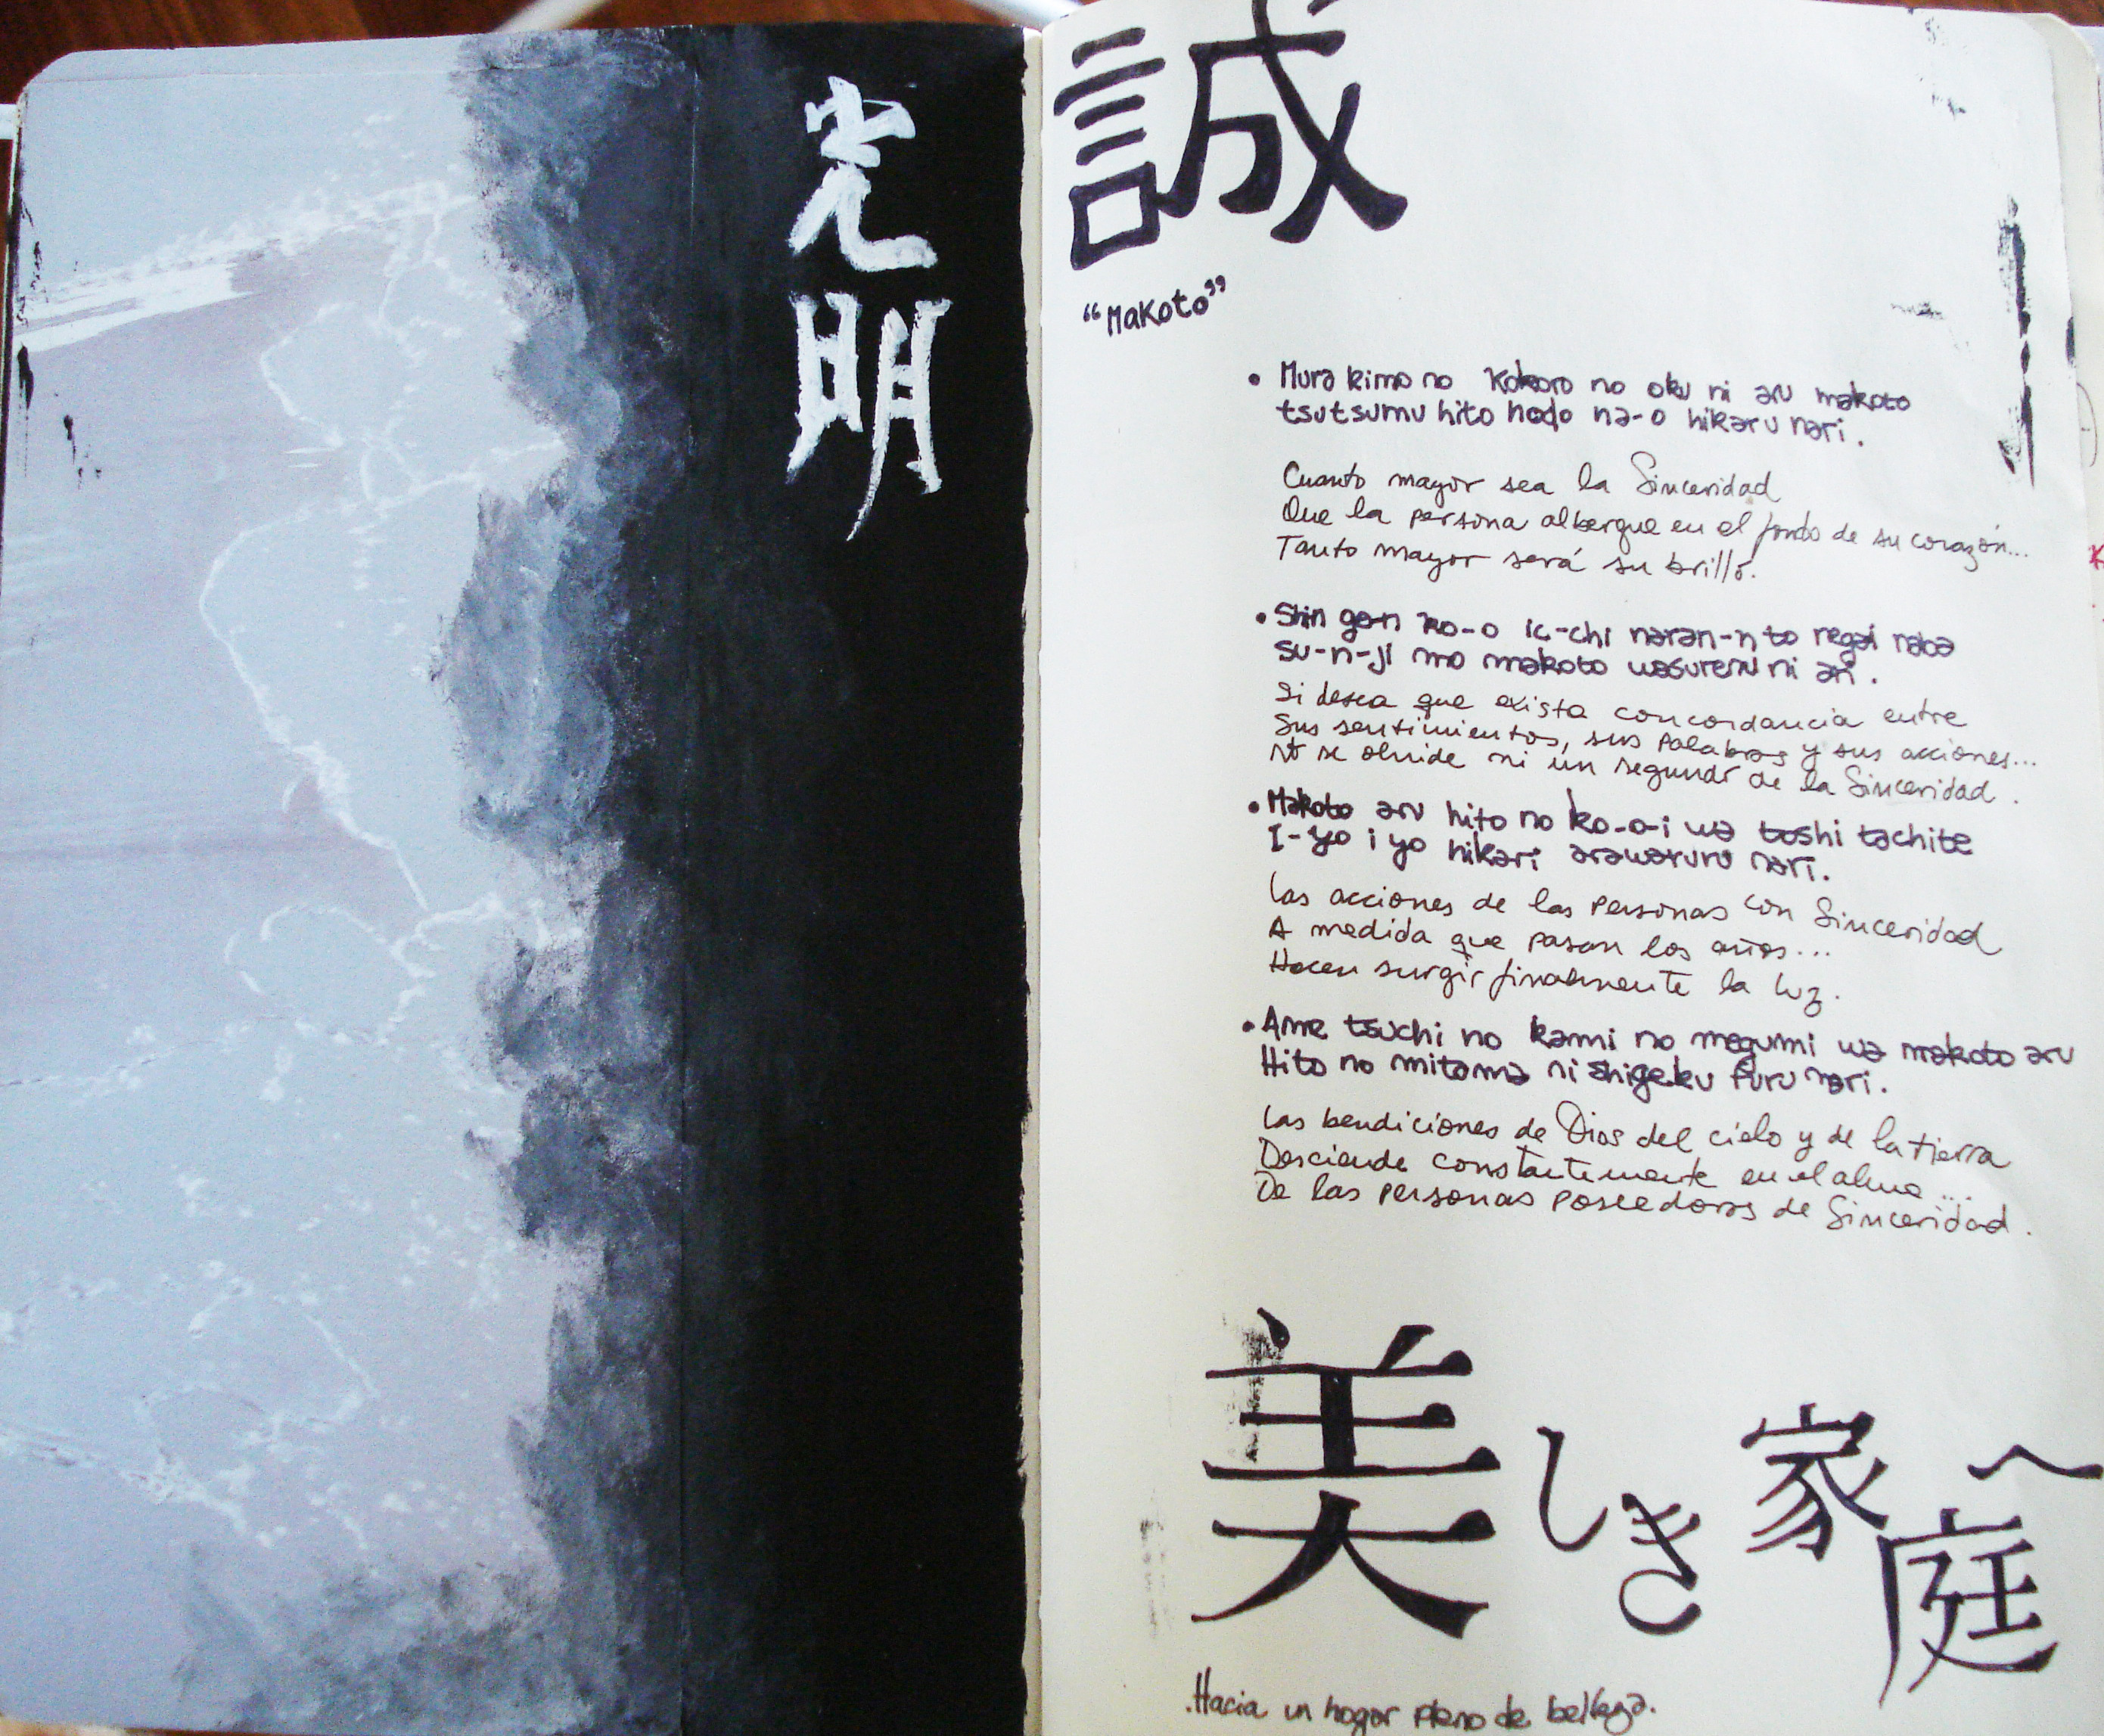 光明
誠
“Makoto”
• Mura kimo no Kokoro no oku ni aru makoto
tsutsumu hito hodo na-o hikaru nari.
Cuanto mayor sea la Sinceridad
Que la persona albergue en el fondo de su corazón...
Tanto mayor será su brillo.
• Shin gen ko-o ic-chi naran-n to regai naba
su-n-ji mo makoto wasurenu ni ari.
Si desea que exista concordancia entre
Sus sentimientos, sus palabras y sus acciones...
No se olvide ni un segundo de la Sinceridad.
• Makoto aru hito no ko-o-i wa toshi tachite
I-yo i yo hikari arawaruru nari.
Las acciones de las personas con Sinceridad
A medida que pasan los años...
Hacen surgir finalmente la luz.
• Ame tsuchi no kami no megumi wa makoto aru
Hito no mitama ni shigeku furu nari.
Las bendiciones de Dios del cielo y de la tierra
Desciende constantemente en el alma...
De las personas poseedoras de Sinceridad.
美しき家庭へ
.Hacia un hogar pleno de belleza.